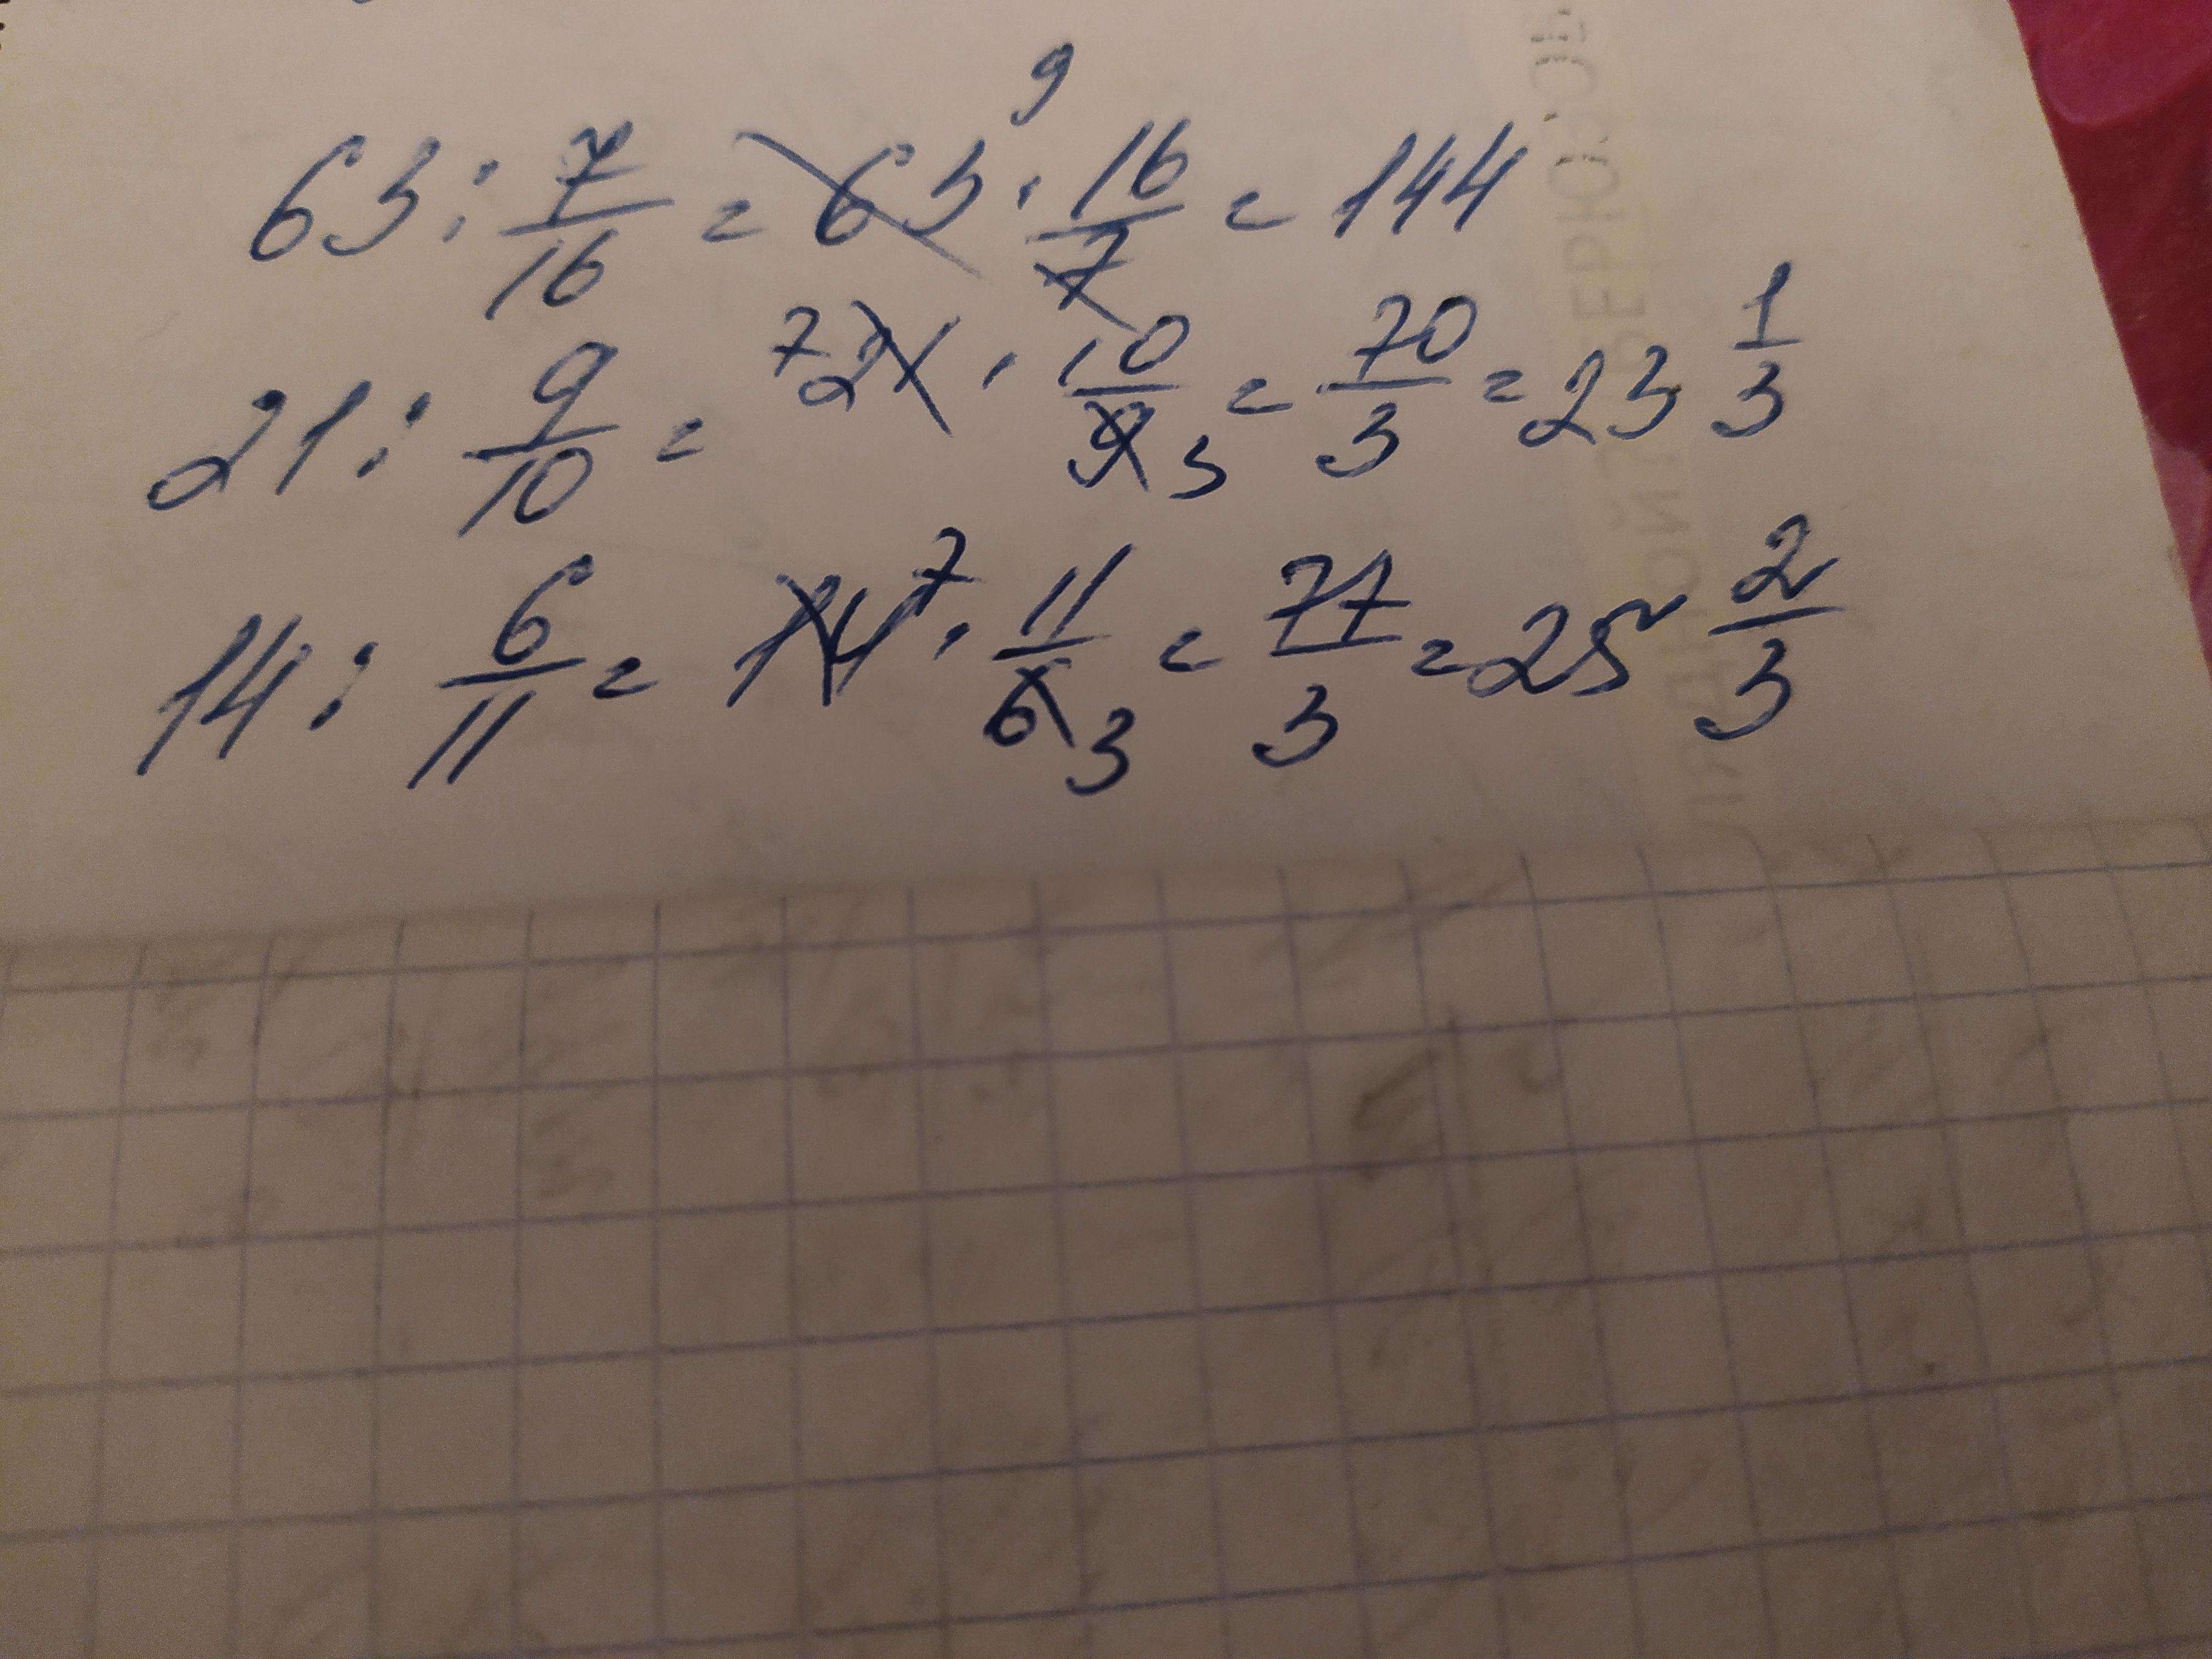 63 : 7/16 = 63 9 · 16/7 = 144
21 : 9/10 = 7 21 · 10/9 3 = 70/3 = 23 1/3
14 : 6/11 = 14 7 · 11/6 3 = 77/3 = 25 2/3